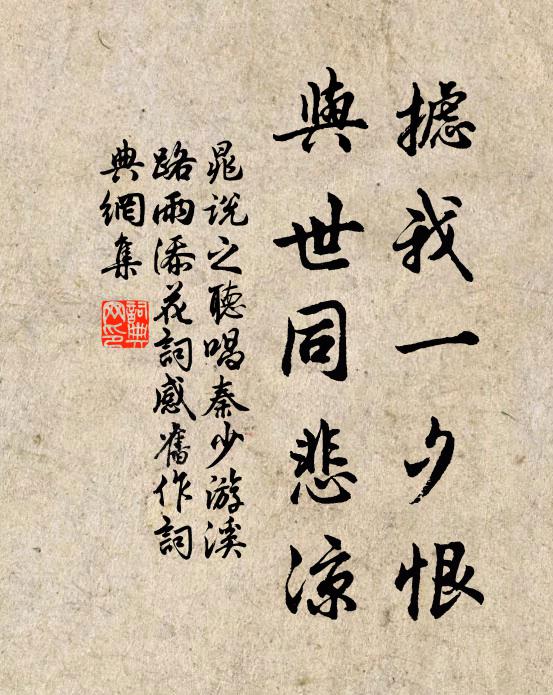 摅我一夕恨
與世同悲凉
晁说之聽唱秦少游溪
路雨添花詞感舊作詞
典網集
詞典
网印